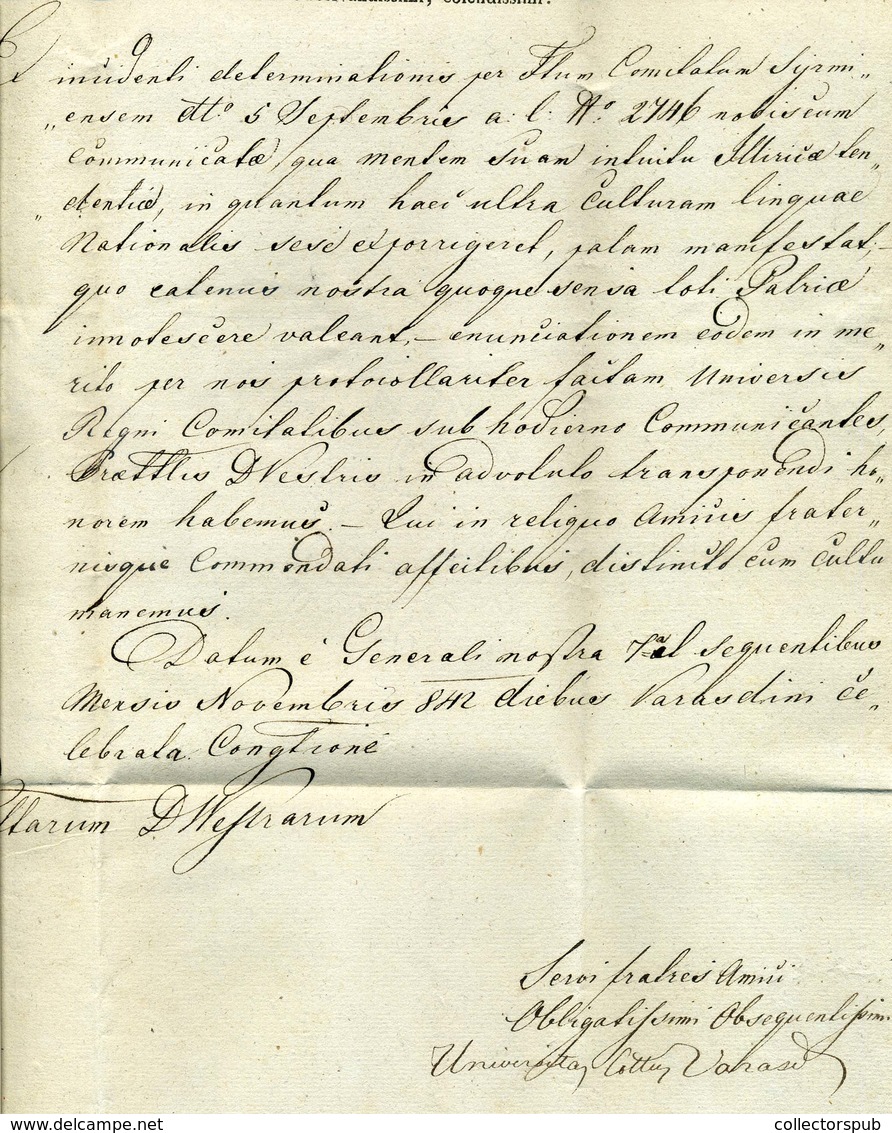 colendissimi.
Ex
incidenti determinationis per Ittum Comitatum Syrmi„
„ensem dtto 5 Septembris a: c: No. 2746 nobiscum
Communicatæ, qua mentem suam intuitu Illiricæ ten„
„dentiæ, in quantum haec ultra Culturam linguae
Nationalis sese exporrigeret, palam manifestat;–
quo eatenus nostra quoque sensa toti Patriæ
innotescere valeant,– enunciationem eodem in me„
rito per nos protocollariter factam Universis
Regni Comitatibus sub hodierno Communicantes,
Prættlis DVestris in advoluto transponendi ho„
norem habemus.– Qui in reliquo amicis frater„
nisque Commendati affectibus, distincto cum Cultu
manemus.
Datum e Generali nostra 7a et sequentibus
Mensis Novembris 842 diebus Varasdini Ce„
lebrata Congtione
ttarum DVestrarum
Servi fratres Amici
Obligatissimi Obsequentissimi
Universitas Cottus Varasd
www.delcampe.net
collectorspub